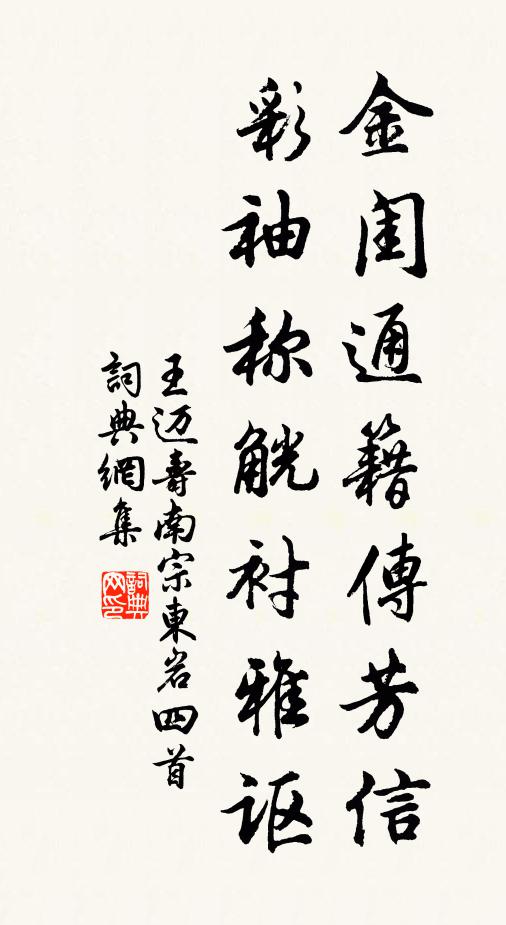 金閨通籍傳芳信
彩袖称觥衬雅讴
王迈壽南宗東岩四首
詞典網集
詞典网印